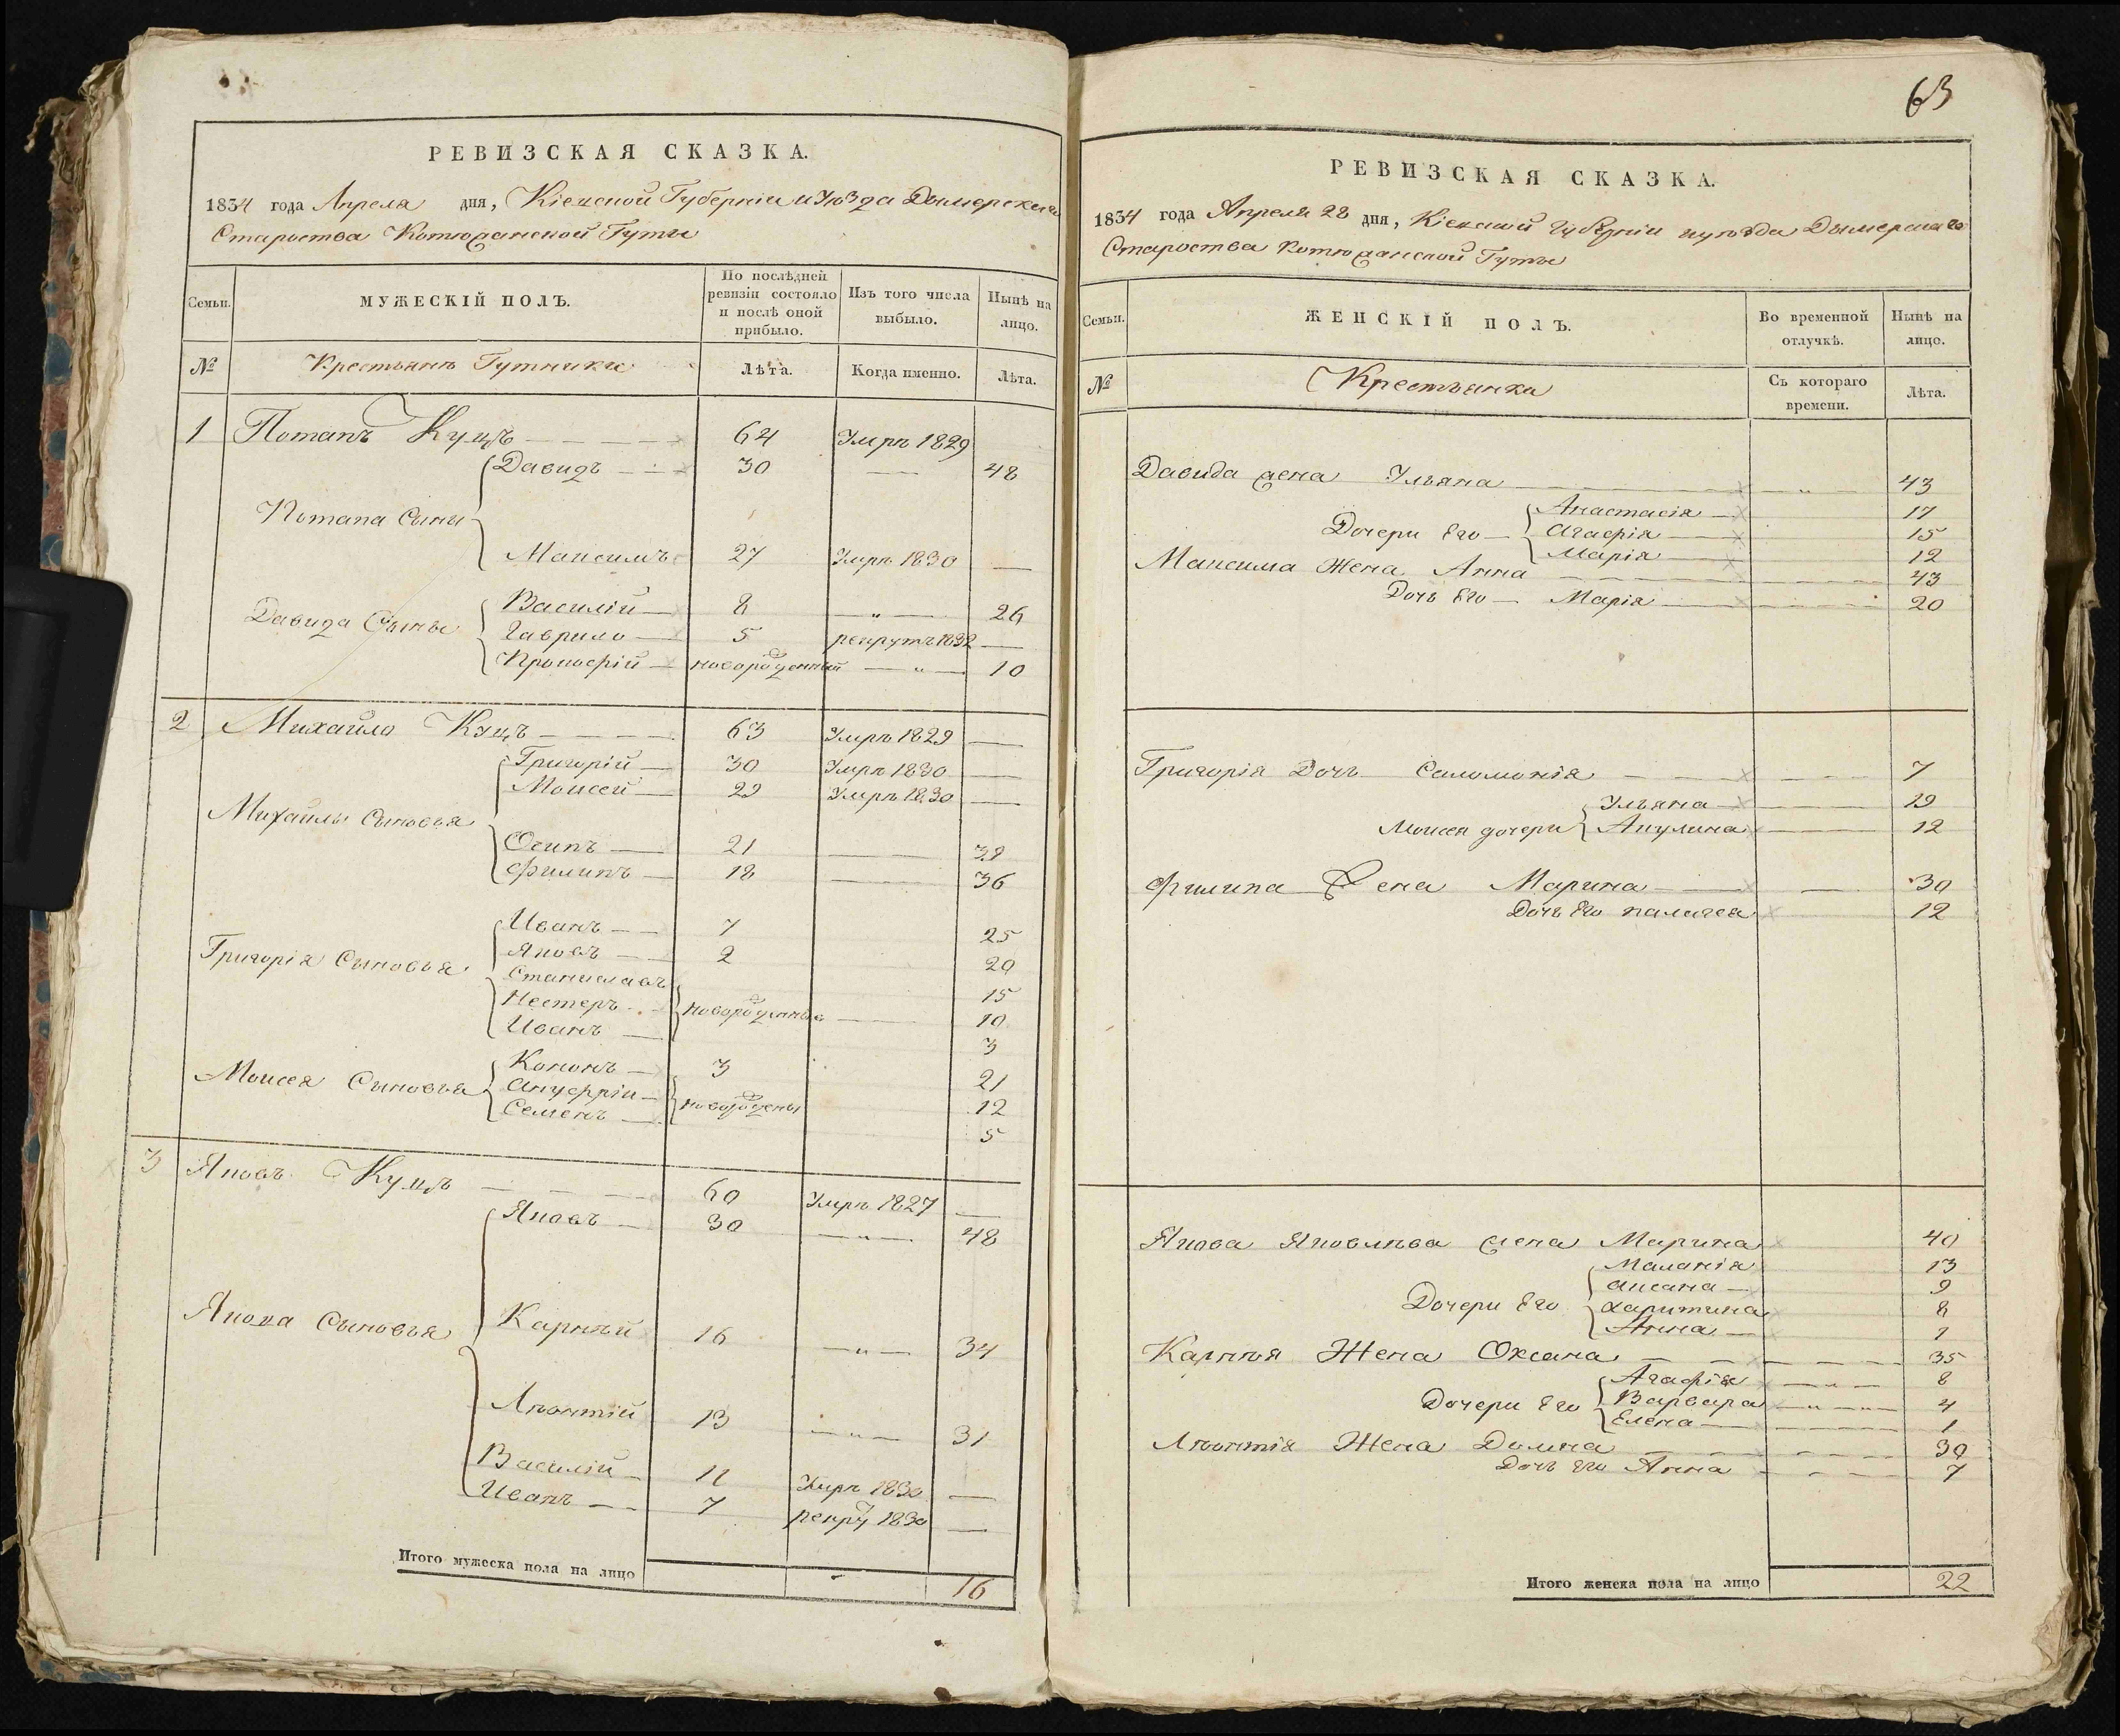 РЕВИЗСКАЯ СКАЗКА.
1834 года Апреля дня, Кіевской Губерніи и Уѣзда Дымерскаго
Староства Котюжанской Гуты
Семьи. МУЖЕСКІЙ ПОЛЪ. По послѣдней ревизіи состояло и послѣ оной прибыло. Изъ того числа выбыло. Нынѣ на лицо.
№ Крестьянъ Гутники Лѣта. Когда именно. Лѣта.
1 Потапъ Куцъ 64 Умръ 1829
Давидъ 30 — 48
Потапа Сыны
Максимъ 27 Умръ 1830 —
Василій 8 — " — 26
Давида Сыны Гаврило 5 рекрутъ 1832 —
Прокофій новорожденный — " — 10
2 Михайло Куцъ 63 Умръ 1829 —
Григорій 30 Умръ 1830 —
Моисей 29 Умръ 1830 —
Михайлы Сыновья
Осипъ 21 — 38
Филипъ 18 — 36
Иванъ 7 25
Яковъ 2 20
Григорія Сыновья Станиславъ 15
Нестеръ новорожденные — 10
Иванъ 3
Кононъ 3 21
Моисея Сыновья Ануфріи новорождены 12
Семенъ 5
3 Яковъ Куцъ 60 Умръ 1827 —
Яковъ 30 — " — 48
Якова Сыновья Карнѣй 16 — " — 34
Лѣонтій 13 — " — 31
Василій 11 Умръ 1830 —
Иванъ 7 рекру 1830 —
Итого мужеска пола на лицо 16
63
РЕВИЗСКАЯ СКАЗКА.
1834 года Апреля 28 дня, Кіевской Губерніи и уѣзда Дымерскаго
Староства Котюжанской Гуты
Семьи. ЖЕНСКІЙ ПОЛЪ. Во временной отлучкѣ. Нынѣ на лицо.
№ Крестьянки Съ котораго времени. Лѣта.
Давида жена Ульяна — " — 43
Анастасія 17
Дочери Его Агафія 15
Марія 12
Максима Жена Анна 43
Дочь Его Марія 20
Григорія Дочь Саломонія 7
Ульяна 19
Моисея дочери Акулина 12
Филипа Жена Марина 30
Дочь Его палагея 12
Якова Яковлѣва жена Марина 40
Маланія 13
Аксана 9
Дочери Его Харитина 8
Анна 1
Карнѣя Жена Оксана 35
Агафія 8
Дочери Его Варвара 4
Елена 1
Лѣонтія Жена Домна 30
Дочь Его Анна 7
Итого женска пола на лицо 22